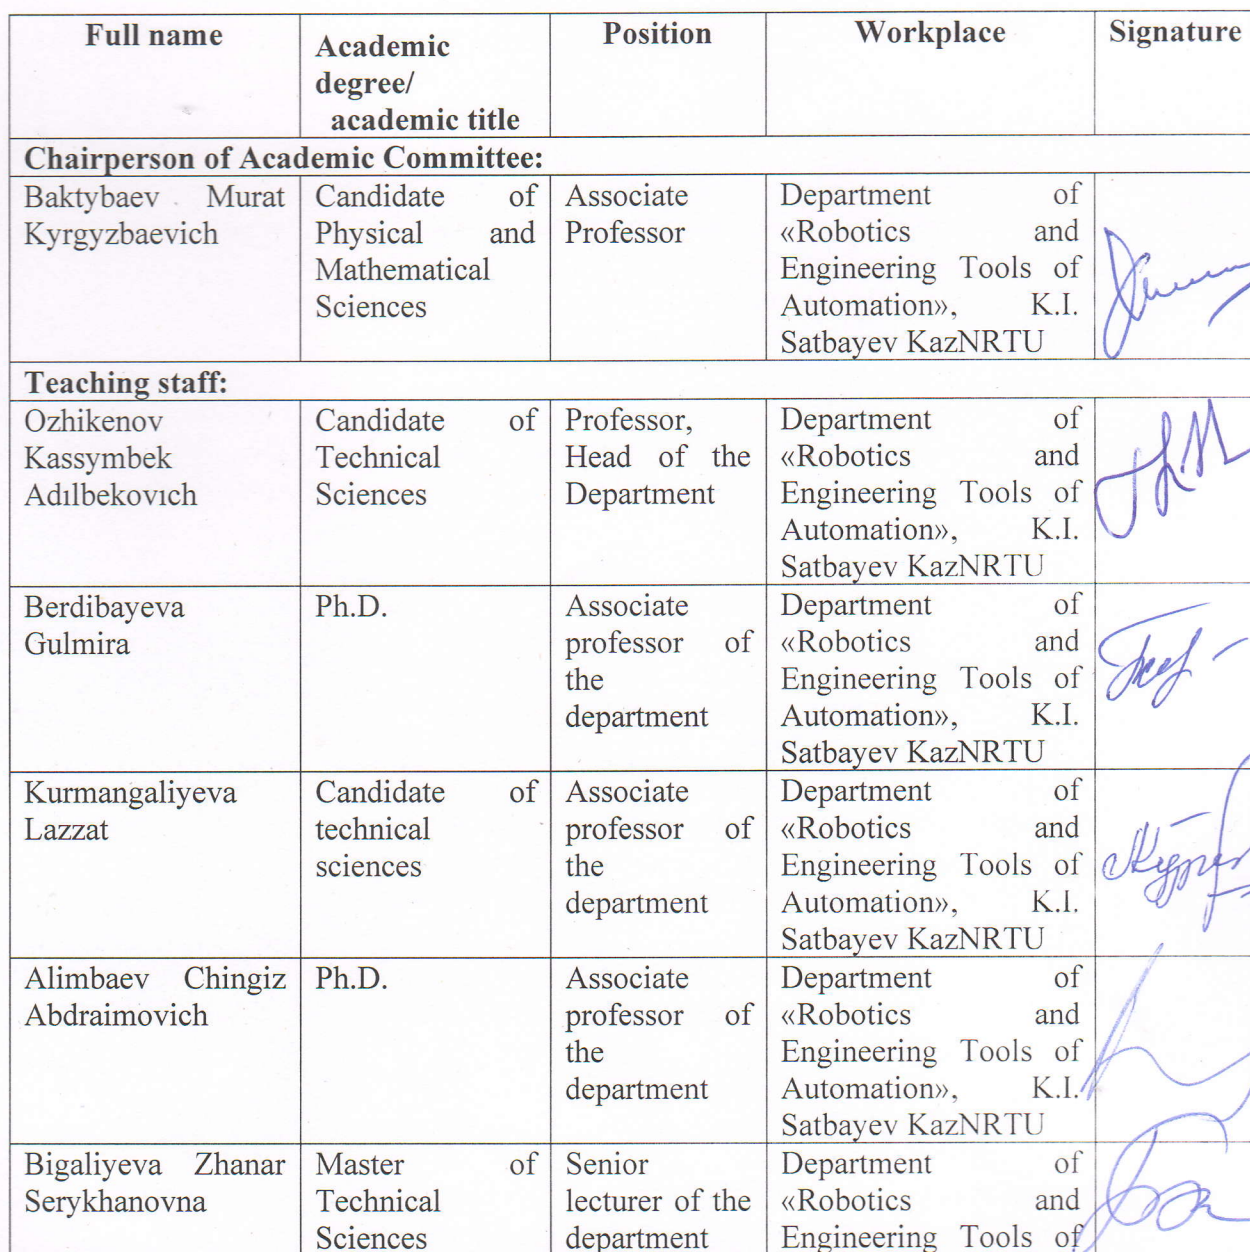 Full name
Academic
degree/
academic title
Position
Workplace
Signature
Chairperson of Academic Committee:
Baktybaev Murat
Kyrgyzbaevich
Candidate of
Physical and
Mathematical
Sciences
Associate
Professor
Department of
«Robotics and
Engineering Tools of
Automation», K.I.
Satbayev KazNRTU
Teaching staff:
Ozhikenov
Kassymbek
Adılbekovıch
Candidate of
Technical
Sciences
Professor,
Head of the
Department
Department of
«Robotics and
Engineering Tools of
Automation», K.I.
Satbayev KazNRTU
Berdibayeva
Gulmira
Ph.D.
Associate
professor of
the
department
Department of
«Robotics and
Engineering Tools of
Automation», K.I.
Satbayev KazNRTU
Kurmangaliyeva
Lazzat
Candidate of
technical
sciences
Associate
professor of
the
department
Department of
«Robotics and
Engineering Tools of
Automation», K.I.
Satbayev KazNRTU
Alimbaev Chingiz
Abdraimovich
Ph.D.
Associate
professor of
the
department
Department of
«Robotics and
Engineering Tools of
Automation», K.I.
Satbayev KazNRTU
Bigaliyeva Zhanar
Serykhanovna
Master of
Technical
Sciences
Senior
lecturer of the
department
Department of
«Robotics and
Engineering Tools of